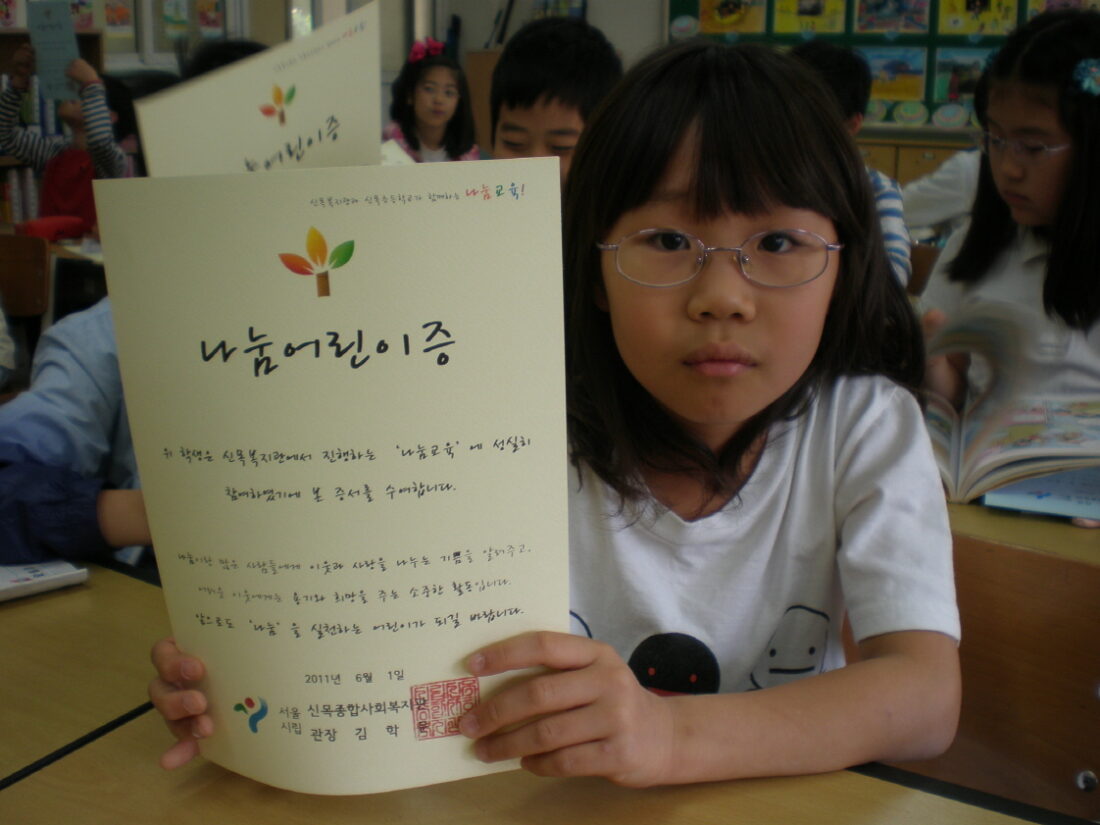 신목복지관과 신목초등학교가 함께하는 나눔교육!
나눔어린이증
위 학생은 신목복지관에서 진행하는 '나눔교육'에 성실히
참여하였기에 본 증서를 수여합니다.
나눔이란 많은 사람들에게 이웃과 사랑을 나누는 기쁨을 알려주고,
어려운 이웃에게는 용기와 희망을 주는 소중한 활동입니다.
앞으로도 '나눔'을 실천하는 어린이가 되길 바랍니다.
2011년 6월 1일
서울시립 신목종합사회복지관
관장 김 학
어린이증